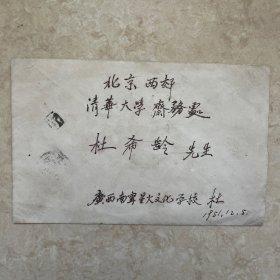 北京西郊
清華大學齋務處
杜希齡先生
廣西南寧星火文化学校 杜
1951.12.5.